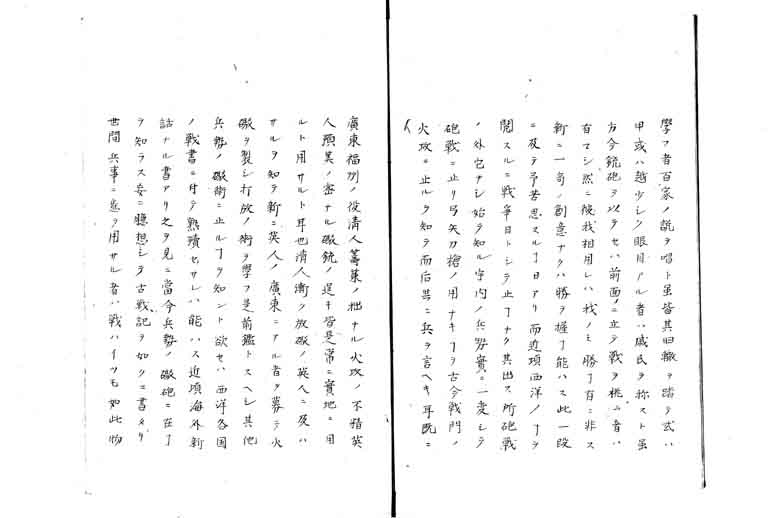 學フ者百家ノ説ヲ唱ト虽皆其旧轍ヲ踏テ或ハ
甲或ハ越少シク眼目アル者ハ戚氏ヲ称スト虽
方今銃砲ヲ以テセハ前面ニ立テ戦ヲ挑ム者ハ
有マシ然ニ彼我相用レハ我ノミ勝了有ニ非ス
新ニ一旬ノ創意ナクハ勝ヲ握了能ハス此一段
ニ及テ予苦思スル了日アリ而近項西洋ノ了ヲ
閲スルニ戦争日トシテ止了ナク其出ス所砲戦
ノ外他ナシ始テ知ル宇内ノ兵勢實ニ一変シテ
砲戦ニ止リ弓矢刀槍ノ用ナキ了ヲ古今戦鬥ノ
火攻ニ止ルヲ知テ而后共ニ兵ヲ言ヘキ耳既ニ
廣東福州ノ役清人籌策ノ拙ナル火攻ノ不精英
人預其ノ密ナル礮銃ノ逞キ皆是常ニ實地ニ用
ルト用サルト耳也清人漸ク放礮ノ英人ニ及ハ
サルヲ知テ新ニ英人ノ廣東ニアル者ヲ募テ火
礮ヲ製シ打放ノ術ヲ學フ是前鑑トスヘシ其他
兵勢ノ礮術ニ止ル了ヲ知ント欲セハ西洋各国
ノ戦書ニ付テ熟讀セサレハ能ハス近項海外新
話ナル書アリ之ヲ見ニ當今兵勢ノ礮砲ニ在了
ヲ知ラス妄ニ臆想シテ古戦記ヲ如クニ書タリ
世間兵事ニ意ヲ用サル者ハ戦ハイツモ如此物